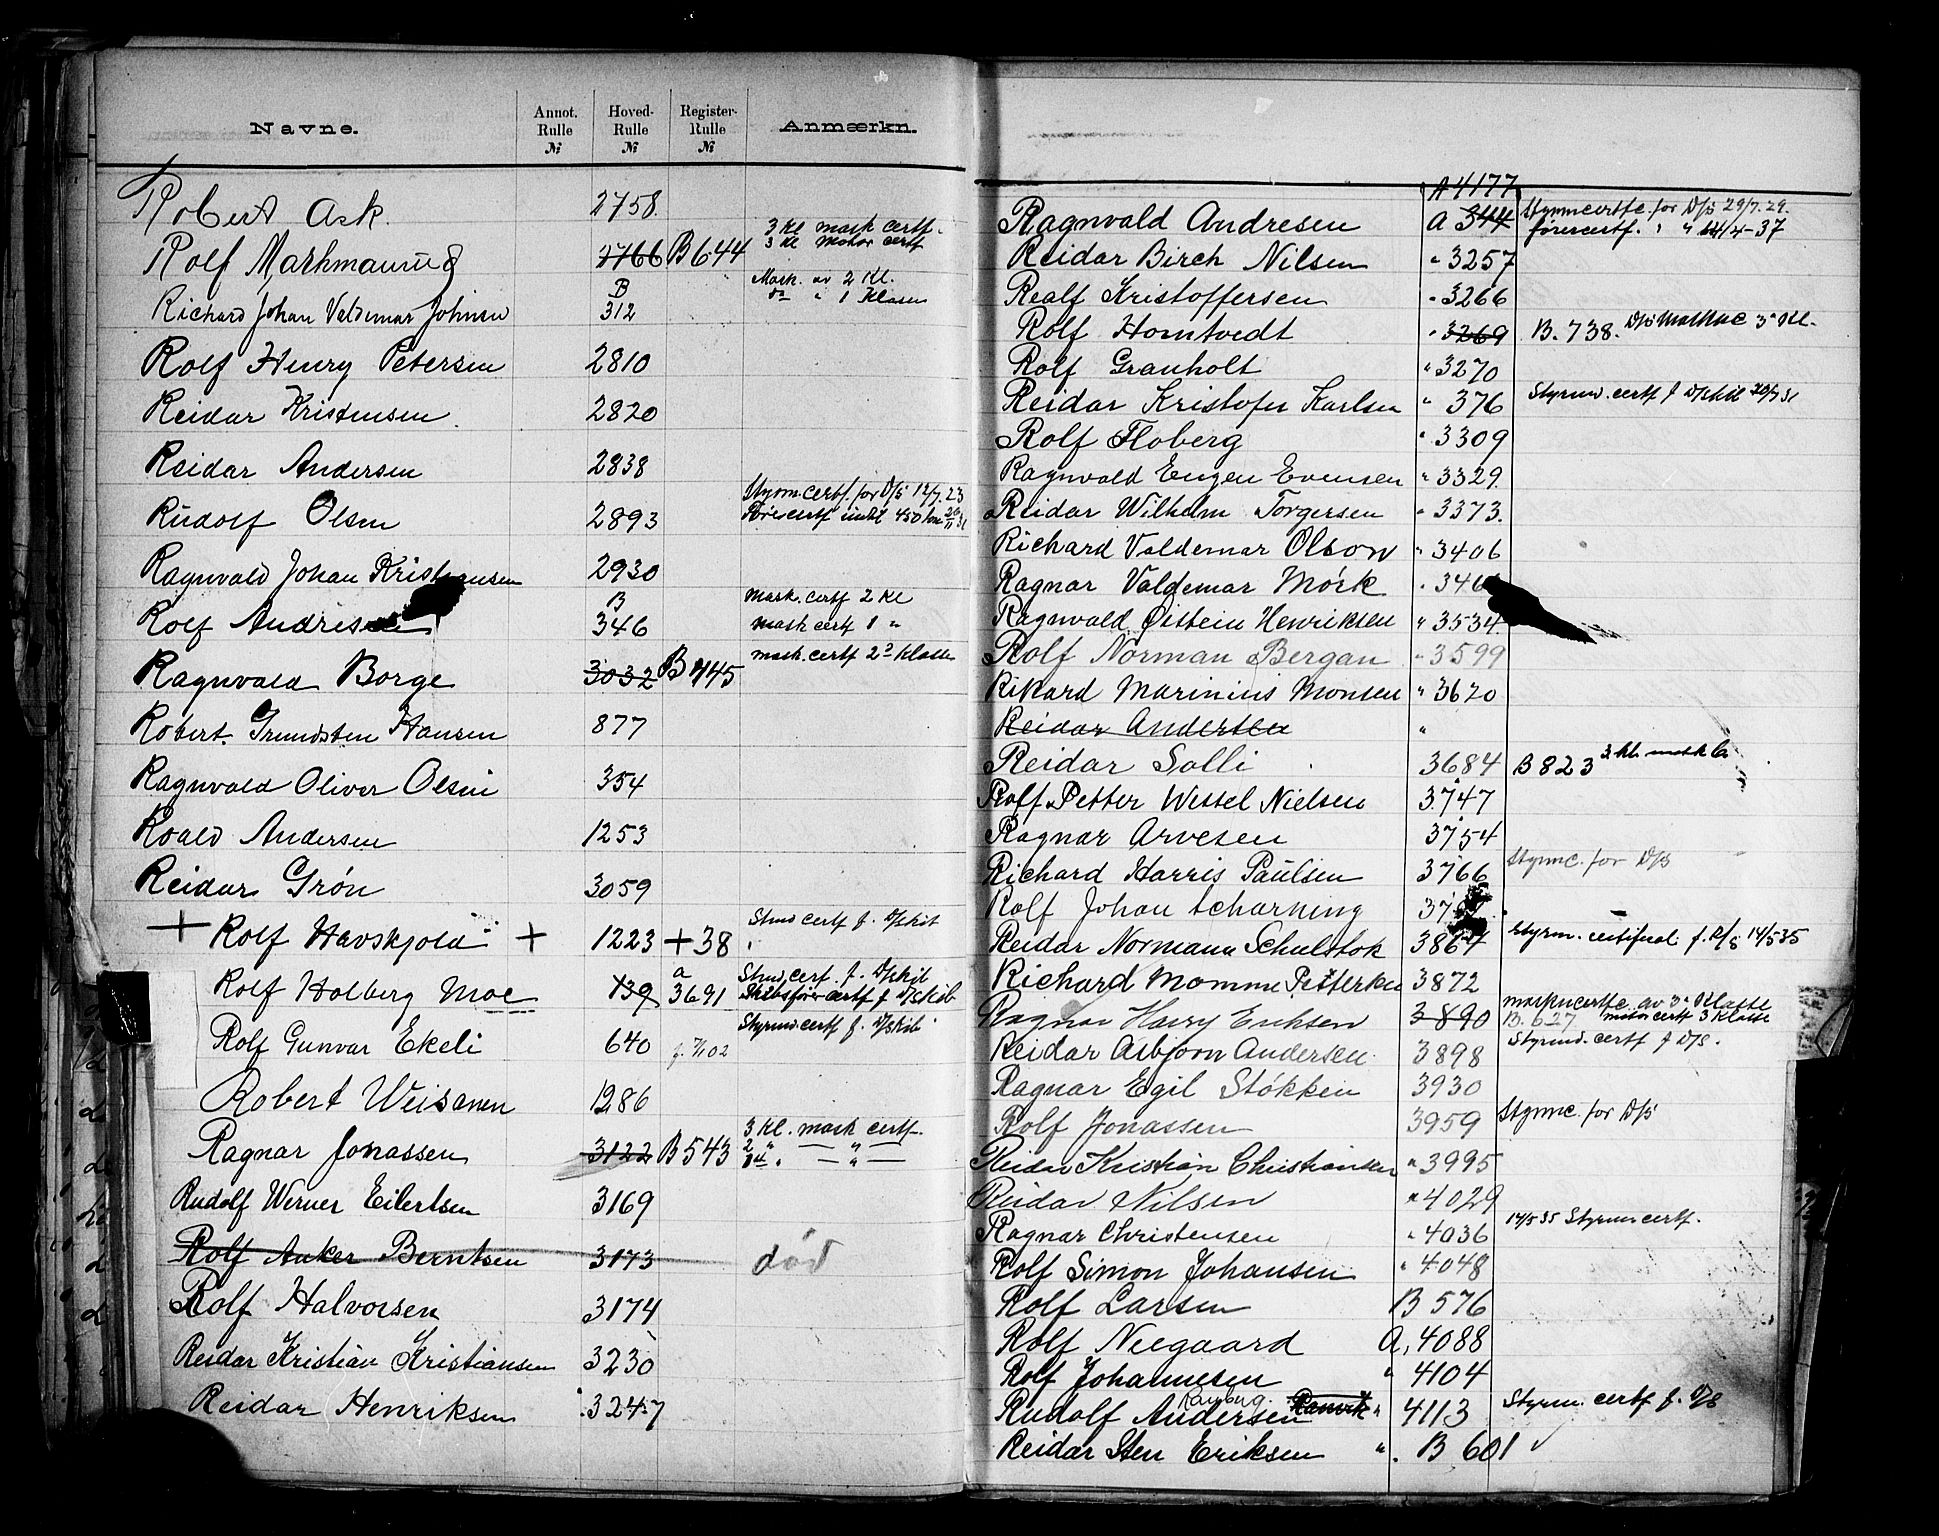 Navne. Annot. Rulle № Hoved- Rulle № Register- Rulle № Anmærkn.
Robert Ask. 2758
Rolf 2766 B644 3 kl mask certf. 3 kl motor certf
Richard Johan Valdemar Johnsen B 312 Mask. av 2 Kl. do " 1 Klasse
Rolf Henry Petersen 2810
Reidar Kristensen 2820
Reidar Andersen 2838
Rudolf Olsen 2893 Styrm certf. for D/S 12/7.23 certf indtil 450
Ragnvald Johan Kristiansen 2930
Rolf Andresen B 346 Mask. certf 2 Kl mask certf 1 "
Ragnvald Borge 3032 B 445 mask. certf 2 Klasse
Robert Grundsten Hansen 877
Ragnvald Oliver Olsen 354
Roald Andersen 1253
Reidar Grön 3059
+ Rolf Havskjold + 1223 +38 Strmd certf f. D/skib
Rolf Holberg Moe 739 a 3691 Strmd. cert. f. D/skib Skibsfører certf f D/skib
Rolf Gunvar Ekeli 640 Styrmd certf f. D/skib
Robert Weisanen 1286
Ragnar Jonassen 3122 B543 3 Kl. mask certf. 2 " — " —
Rudolf Werner Eilertsen 3169
Rolf Anker Berntsen 3173 död
Rolf Halvorsen 3174
Reidar Kristian Kristiansen 3230
Reidar Henriksen 3247
A4177
Ragnvald Andresen a 344 Styrmcertfc. for D/S 29/7.29. førercertf. " " 14/4-37
Reidar Birch Nilsen " 3257
Realf Kristoffersen " 3266
Rolf Homtvedt " 3269 B. 738. 3 Kl.
Rolf Granholt " 3270
Reidar Kristofer Karlsen " 376 Styrmd. certf f D/skib 20/3 31
Rolf Floberg " 3309
Ragnvald Eugen Evensen " 3329
Reidar Wilhelm Torgersen " 3373.
Richard Valdemar Olson " 3406
Ragnar Valdemar Mörk
Ragnvald Øistein Henriksen " 3534
Rolf Norman Bergan " 3599
Rikard Marinius Monsen " 3620
Reidar Andersen "
Reidar Solli 3684 B 823 3 kl. mask
Rolf Petter Wessel Nielsen 3747
Ragnar Arvesen 3754
Richard Harris Paulsen 3766 Styrmc. for D/S
Rolf Johan Scharning
Reidar Normann Schulstok 3867 Styrm. certifikat f. D/S 14/5 35
Richard Momme Petterson 3872
Ragnar Harry Eriksen 3890 maskncertfc av 3 Klasse B. 627 motor certf 3 Klasse
Reidar Asbjorn Andersen 3898 Styrmd. certf f D/S.
Ragnar Egil Stökken 3930
Rolf Jonassen 3959 Styrmc. for D/S
Reidar Kristian Christiansen " 3995
Reidar Nilsen " 4029
Ragnar Christensen " 4036 14/5 35 Styrmcertf.
Rolf Simon Johansen " 4048
Rolf Larsen B 576
Rolf Neegaard a, 4088
Rolf Johannesen " 4104
Rudolf Andersen Ramvik " 4113 Styrm. certf f. D/S
Reidar Sten Eriksen " B 601